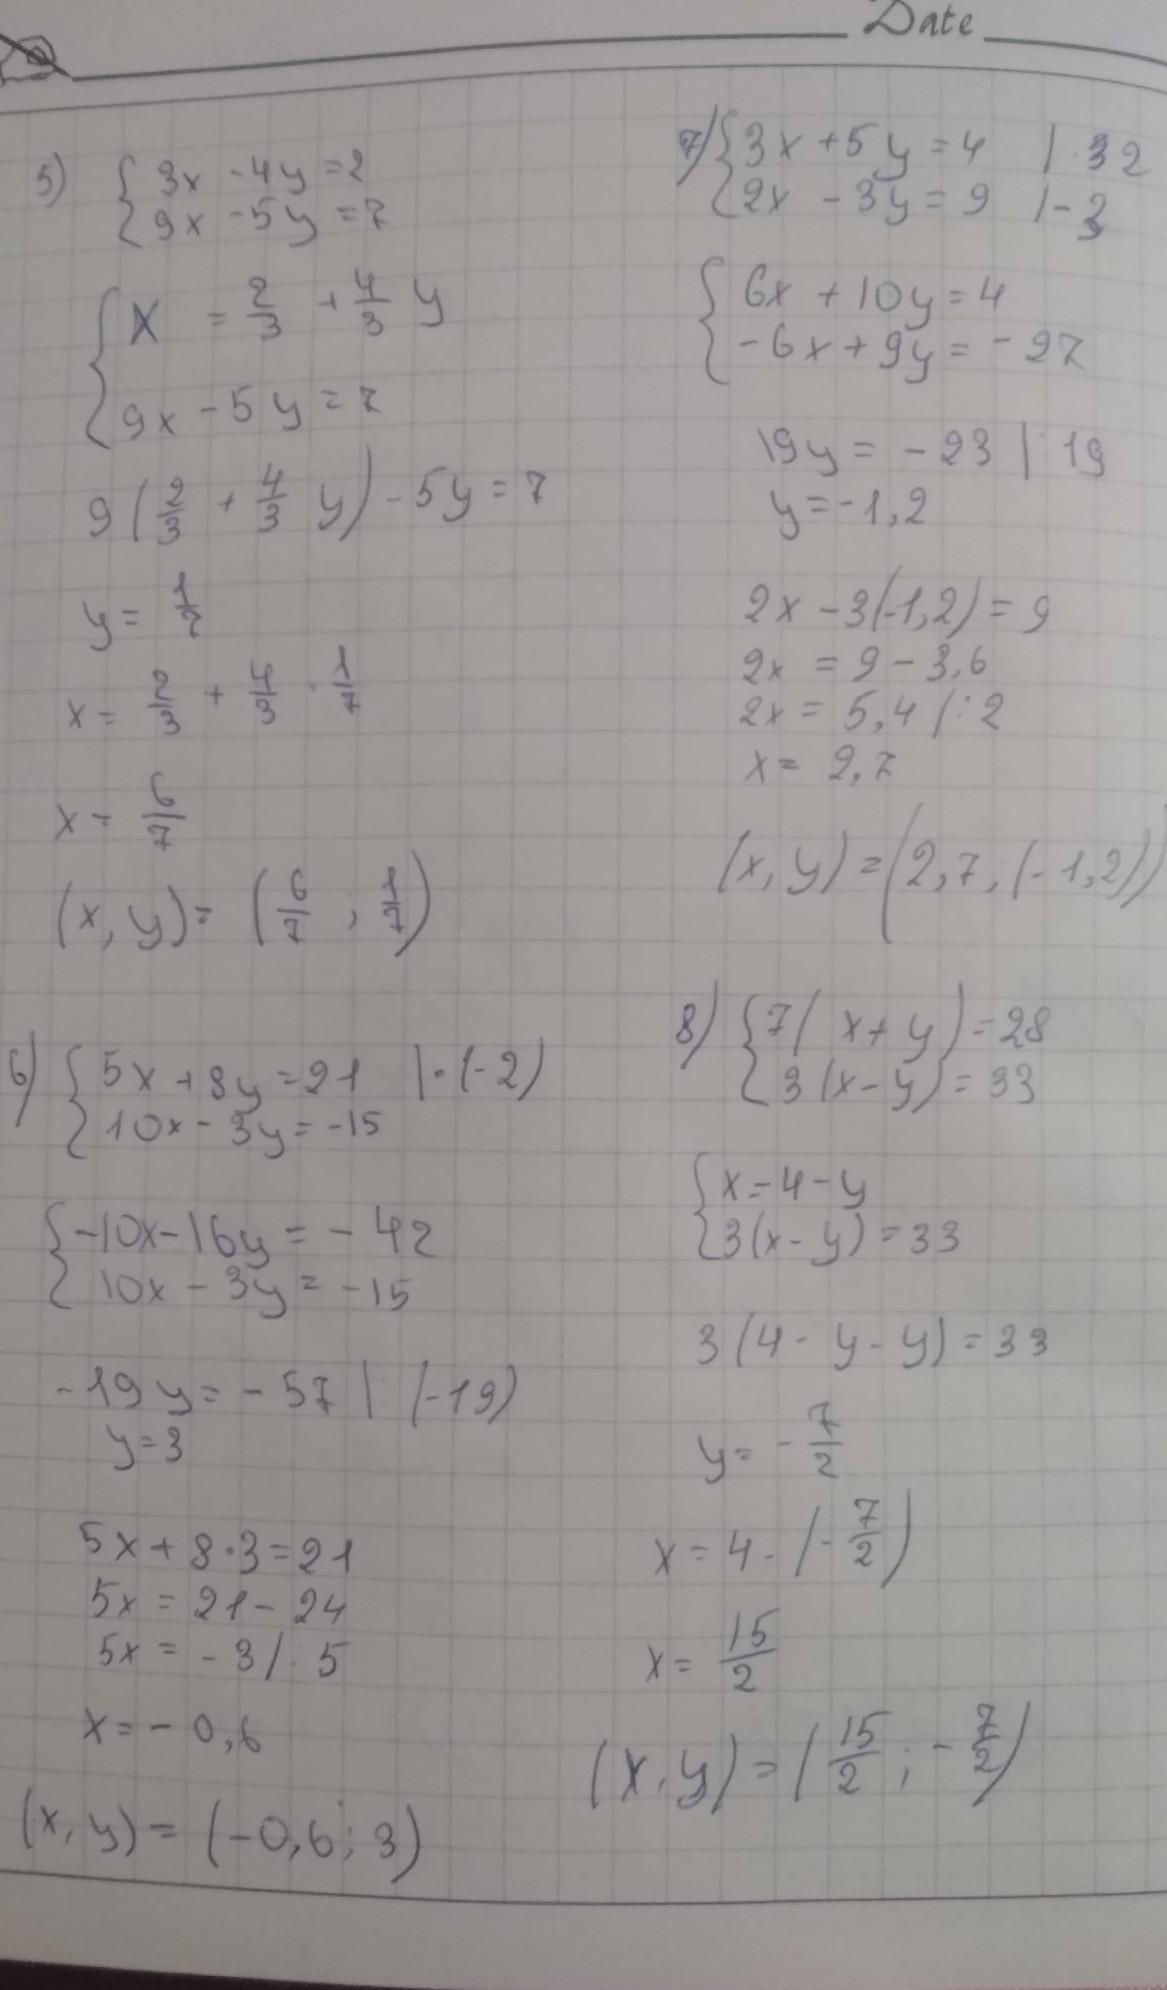 Date
5) { 3x - 4y = 2
9x - 5y = 7
{ x = 2/3 + 4/3 y
9x - 5y = 7
9 (2/3 + 4/3 y) - 5y = 7
y = 1/7
x = 2/3 + 4/3 · 1/7
x = 6/7
(x, y) = (6/7 ; 1/7)
6) { 5x + 8y = 21 | · (-2)
10x - 3y = -15
{ -10x - 16y = - 42
10x - 3y = -15
-19y = - 57 | : (-19)
y = 3
5x + 8·3 = 21
5x = 21 - 24
5x = - 3 / : 5
x = - 0,6
(x, y) = (-0,6 ; 3)
7) { 3x + 5y = 4 | · 2
2x - 3y = 9 | - 3
{ 6x + 10y = 4
- 6x + 9y = - 27
19y = - 23 | : 19
y = -1,2
2x - 3(-1,2) = 9
2x = 9 - 3,6
2x = 5,4 / : 2
x = 2,7
(x, y) = (2,7 ; (-1,2))
8) { 7( x + y ) = 28
3 (x - y) = 33
{ x = 4 - y
3(x - y) = 33
3 (4 - y - y) = 33
y = - 7/2
x = 4 - (- 7/2)
x = 15/2
(x, y) = (15/2 ; - 7/2)